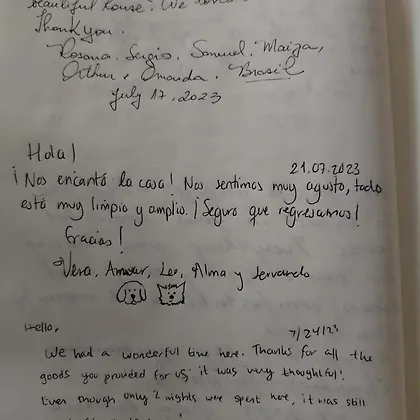 beautiful house. We loved
Thank you.
Rosana, Sergio, Samuel, Maiza,
Arthur, Amanda. Brasil
July 17, 2023
Hola!
21.07.2023
¡Nos encantó la casa! Nos sentimos muy agusto, todo
está muy limpio y amplio. ¡Seguro que regresamos!
Gracias!
Vera, Amwar, Leo, Alma y Servando
Hello,
7/24/23
We had a wonderful time here. Thanks for all the
goods you provided for us; it was very thoughtful!
Even though only 2 nights were spent here, it was still